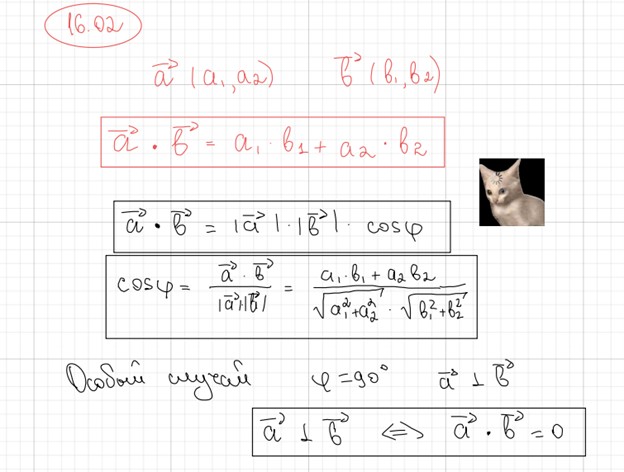 16.02
a⃗ (a₁, a₂) b⃗ (b₁, b₂)
a⃗ · b⃗ = a₁ · b₁ + a₂ · b₂
a⃗ · b⃗ = |a⃗| · |b⃗| · cosφ
cosφ = (a⃗ · b⃗) / (|a⃗|·|b⃗|) = (a₁ · b₁ + a₂ b₂) / (√(a₁² + a₂²) · √(b₁² + b₂²))
Особый случай φ = 90° a⃗ ⊥ b⃗
a⃗ ⊥ b⃗ ⇔ a⃗ · b⃗ = 0